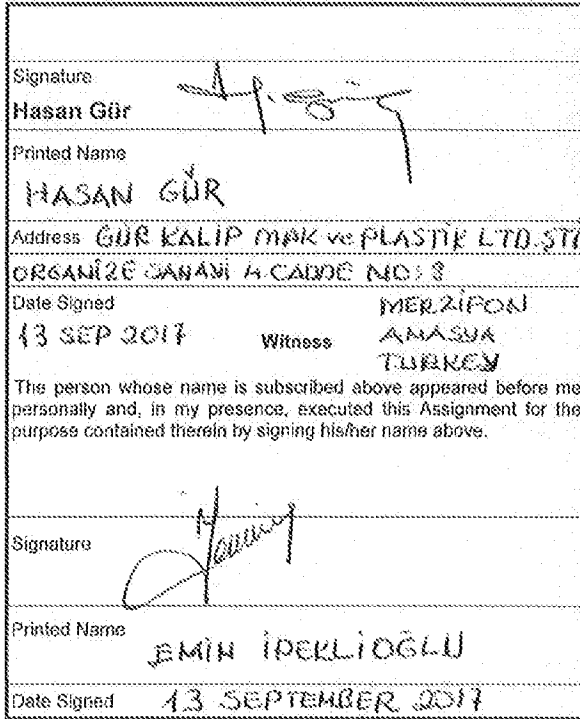 Signature
Hasan Gür
Printed Name
HASAN GÜR
Address GÜR KALIP MAK ve PLASTİK LTD.ŞTİ
ORGANİZE SANAYİ 4.CADDE NO:8
Date Signed
MERZİFON
13 SEP 2017 Witness AMASYA
TURKEY
The person whose name is subscribed above appeared before me
personally and, in my presence, executed this Assignment for the
purpose contained therein by signing his/her name above.
Signature
Printed Name
EMİN İPEKLİOĞLU
Date Signed 13 SEPTEMBER 2017